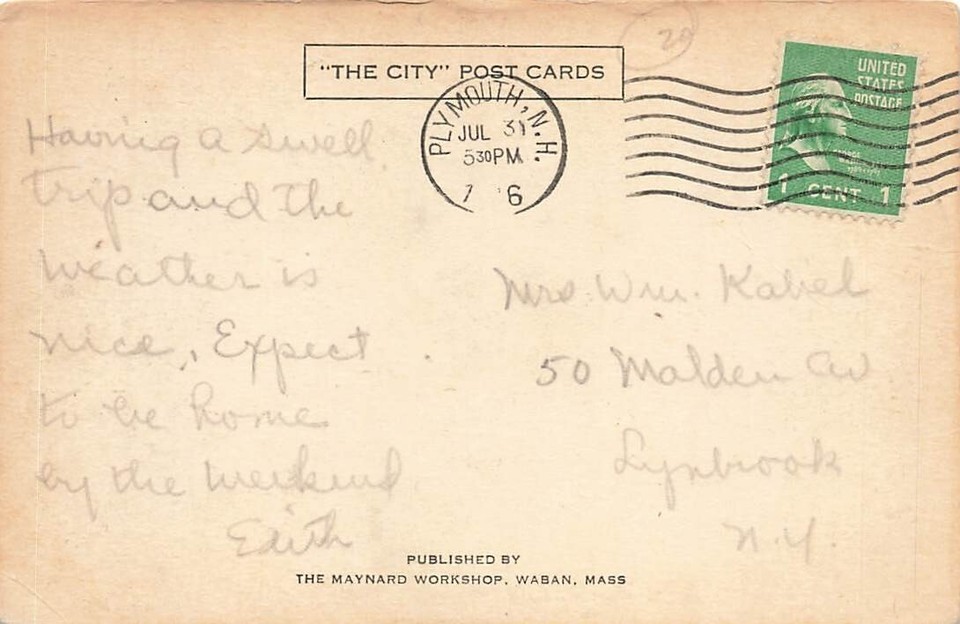 "THE CITY" POST CARDS
29
UNITED
STATES
POSTAGE
GEORGE
1 CENT 1
PLYMOUTH, N.H.
JUL 31
530PM
1 6
Having a swell
trip and the
weather is
nice, Expect
to be home
by the weekend
Edith
Mrs. Wm. Kabel
50 Malden Av
Lynbrook
N.Y.
PUBLISHED BY
THE MAYNARD WORKSHOP, WABAN, MASS